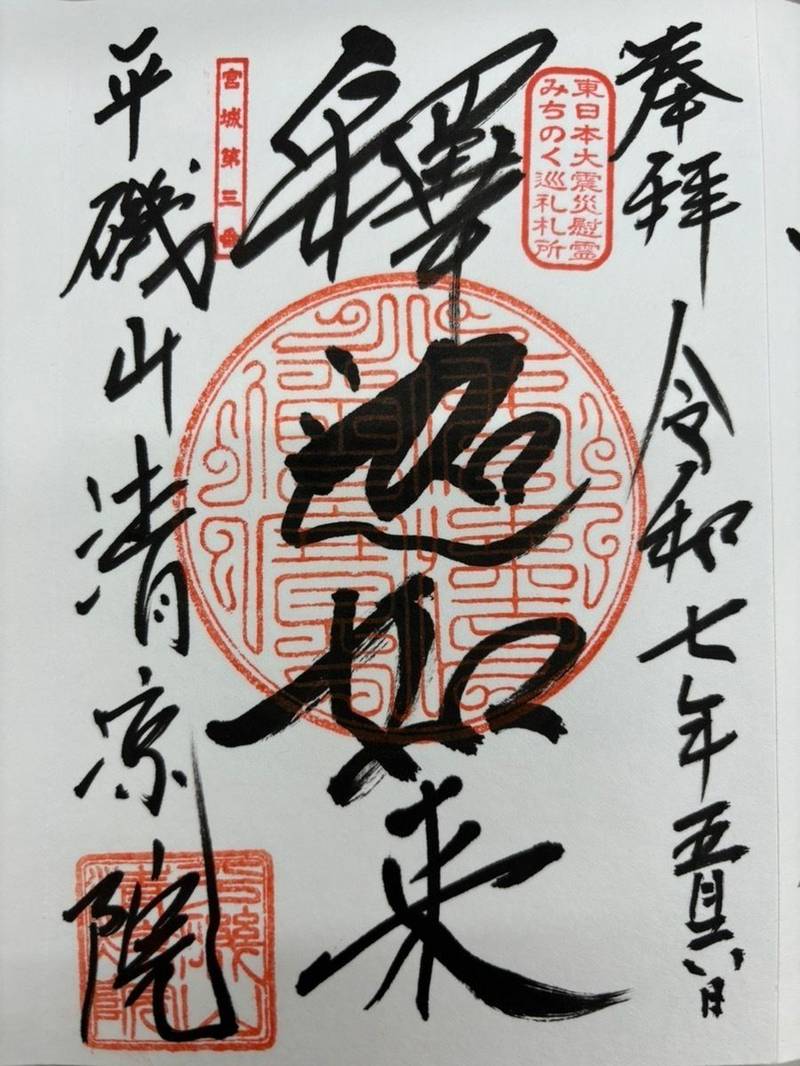 奉拝 令和七年五月
東日本大震災慰霊
みちのく巡礼札所
釋迦如来
宮城第三番
平磯山清凉院